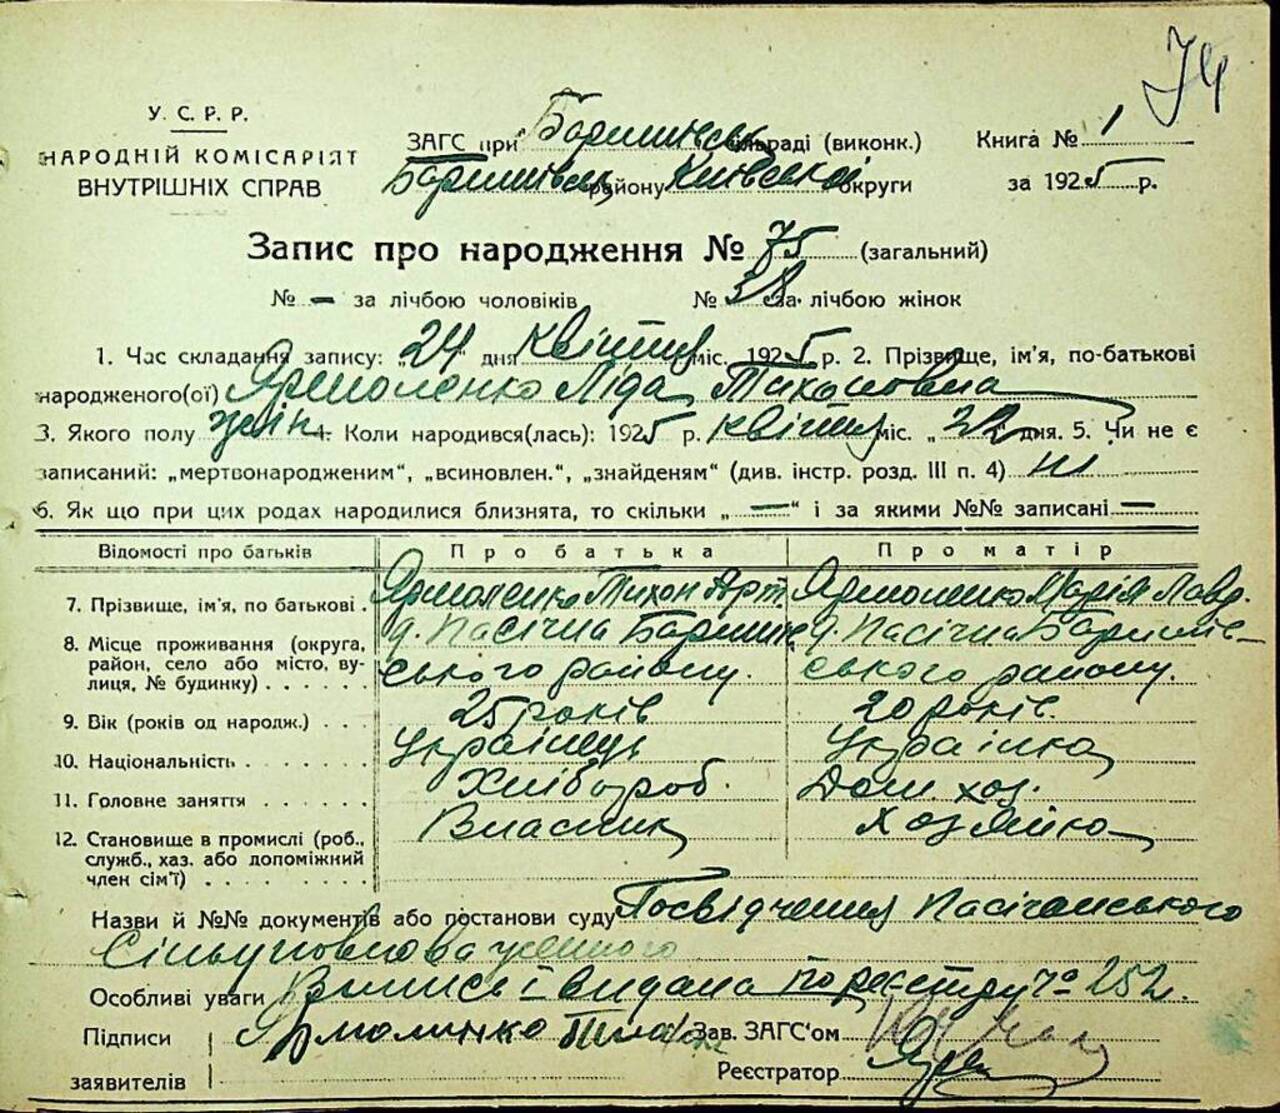 74
У. С. Р. Р.
НАРОДНІЙ КОМІСАРІЯТ
ВНУТРІШНІХ СПРАВ
ЗАГС при Баришівськ сільраді (виконк.)
Баришівськ району Київської округи
Книга № 1
за 1925 р.
Запис про народження № 75 (загальний)
№ — за лічбою чоловіків № 38 за лічбою жінок
1. Час складання запису: „24" дня квітня міс. 1925 р. 2. Прізвище, ім'я, по-батькові
народженого(ої) Ярмоленко Ліда Тихоновна
3. Якого полу жін. 4. Коли народився(лась): 1925 р. квітня міс. „22" дня. 5. Чи не є
записаний: „мертвонародженим", „всиновлен.", „знайденям" (див. інстр. розд. III п. 4) ні
6. Як що при цих родах народилися близнята, то скільки „—" і за якими №№ записані —
Відомості про батьків Про батька Про матір
7. Прізвище, ім'я, по батькові . Ярмоленко Тихон Арт. Ярмоленко Марія Лавр.
8. Місце проживання (округа, район, село або місто, вулиця, № будинку) . . . . . . д. Пасічна Баришівського району. д. Пасічна Баришівського району.
9. Вік (років од народж.) . . 25 років 20 років.
10. Національність . . . . . . Українець Українка
11. Головне заняття . . . . . . Хлібороб. Дом. хоз.
12. Становище в промислі (роб., служб., хаз. або допоміжний член сім'ї) . . . . . . . . Власник Хозяйка
Назви й №№ документів або постанови суду Посвідчення Пасічанського
Сільуповноваженного
Особливі уваги Випись і видана по реєстру № 252.
Підписи Ярмолинко Тихон Зав. ЗАГС'ом
заявителів Реєстратор